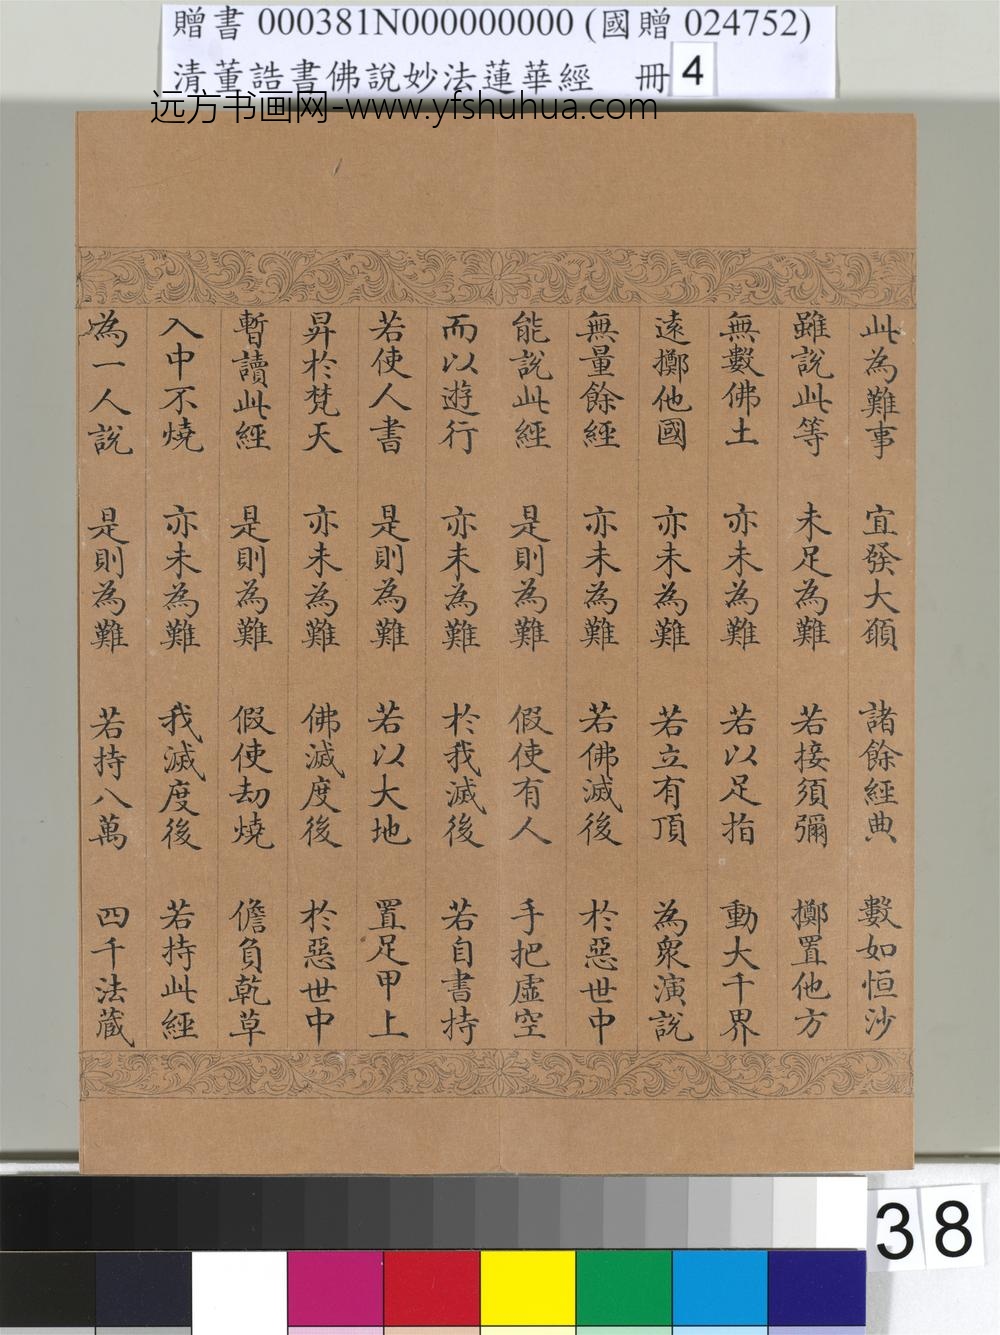 贈書 000381N000000000 (國贈 024752)
清董誥書佛說妙法蓮華經 冊 4
远方书画网-www.yfshuhua.com
此為難事 宜發大願 諸餘經典 數如恒沙
雖說此等 未足為難 若接須彌 擲置他方
無數佛土 亦未為難 若以足指 動大千界
遠擲他國 亦未為難 若立有頂 為衆演說
無量餘經 亦未為難 若佛滅後 於惡世中
能說此經 是則為難 假使有人 手把虛空
而以遊行 亦未為難 於我滅後 若自書持
若使人書 是則為難 若以大地 置足甲上
昇於梵天 亦未為難 佛滅度後 於惡世中
暫讀此經 是則為難 假使劫燒 擔負乾草
入中不燒 亦未為難 我滅度後 若持此經
為一人說 是則為難 若持八萬 四千法蔵
38